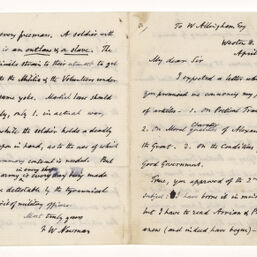 every freeman. A soldier with
is an outlaw or a slave. The
strain is their interest to get
the Militia of the Volunteers under
same yoke. Martial laws should
only, 1. in actual war,
while the soldier holds a deadly
weapon in hard, as to the use of which
summary control is needed. But
in every shape
army is every day being made
detestable by the tyrannical
of military officers.
Most truly yours
F W Newman
To W Allingham Esq
Weston
April
My dear Sir
I expected a letter which
you promised me concerning my
of articles - 1. On Poetical Tran
2. On Moral qualities of Alexan
Character
the Great. 2. On the Conditions
Good Government.
True, you approved of the 2nd
subject: I have borne it in mind
but I have to read Arrian & P
anew (and indeed have begun) -